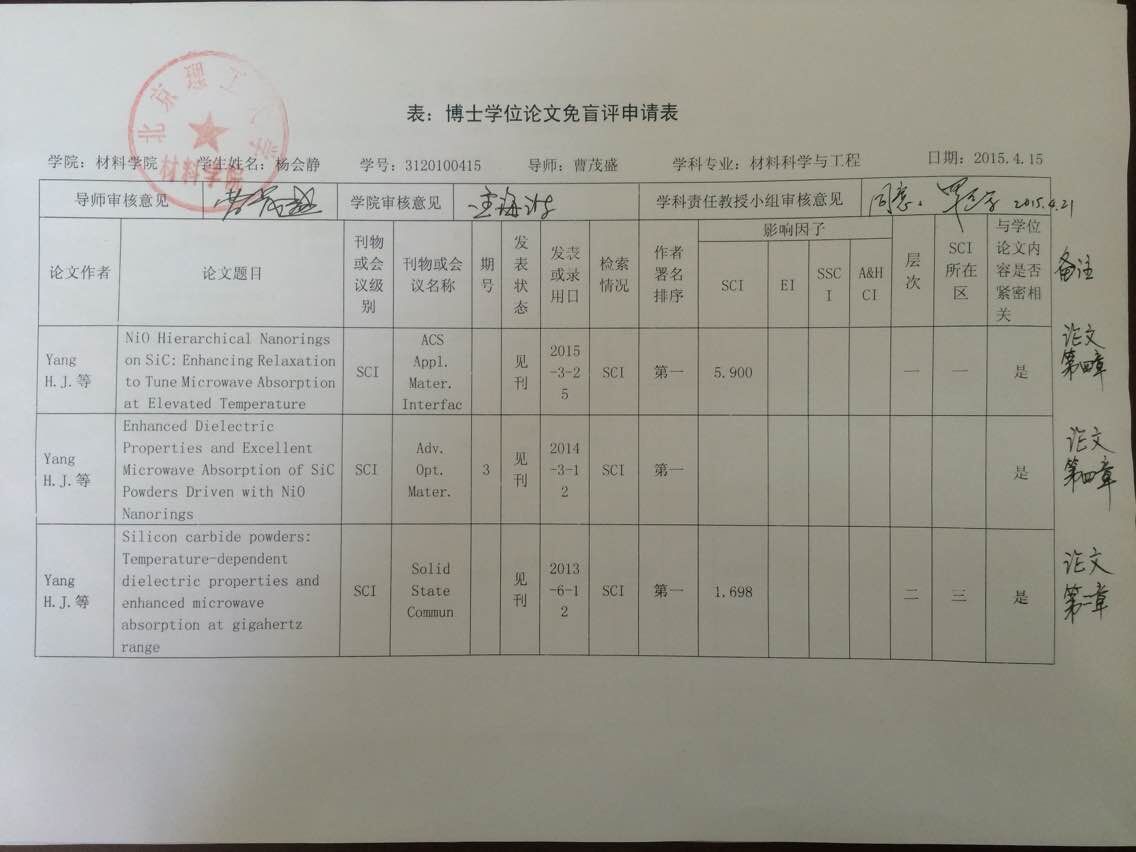 北京理工大学
材料学院
表：博士学位论文免盲评申请表
学院：材料学院 学生姓名：杨会静 学号：3120100415 导师：曹茂盛 学科专业：材料科学与工程 日期：2015.4.15
导师审核意见 学院审核意见 学科责任教授小组审核意见 同意。 2015.4.21
论文作者 论文题目 刊物或会议级别 刊物或会议名称 期号 发表状态 发表或录用日 检索情况 作者署名排序 影响因子 SCI EI SSCI A&HCI 层次 SCI所在区 与学位论文内容是否紧密相关 备注
Yang H.J.等 NiO Hierarchical Nanorings on SiC: Enhancing Relaxation to Tune Microwave Absorption at Elevated Temperature SCI ACS Appl. Mater. Interfac 见刊 2015-3-25 SCI 第一 5.900 一 一 是 论文第四章
Yang H.J.等 Enhanced Dielectric Properties and Excellent Microwave Absorption of SiC Powders Driven with NiO Nanorings SCI Adv. Opt. Mater. 3 见刊 2014-3-12 SCI 第一 是 论文第四章
Yang H.J.等 Silicon carbide powders: Temperature-dependent dielectric properties and enhanced microwave absorption at gigahertz range SCI Solid State Commun 见刊 2013-6-12 SCI 第一 1.698 二 三 是 论文